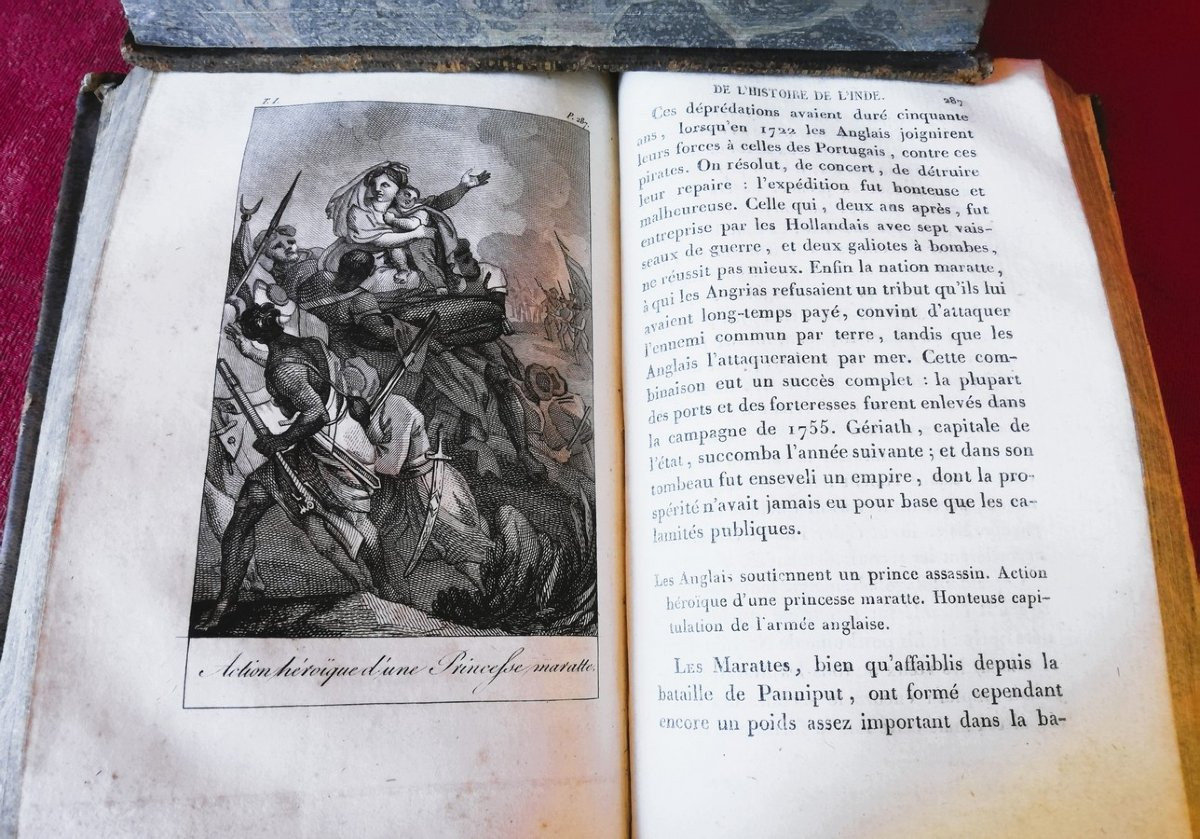 T. I.
P. 287.
Action héroïque d'une Princesse maratte.
DE L'HISTOIRE DE L'INDE.
287
Ces déprédations avaient duré cinquante
ans, lorsqu'en 1722 les Anglais joignirent
leurs forces à celles des Portugais, contre ces
pirates. On résolut, de concert, de détruire
leur repaire : l'expédition fut honteuse et
malheureuse. Celle qui, deux ans après, fut
entreprise par les Hollandais avec sept vais-
seaux de guerre, et deux galiotes à bombes,
ne réussit pas mieux. Enfin la nation maratte,
à qui les Angrias refusaient un tribut qu'ils lui
avaient long-temps payé, convint d'attaquer
l'ennemi commun par terre, tandis que les
Anglais l'attaqueraient par mer. Cette com-
binaison eut un succès complet : la plupart
des ports et des forteresses furent enlevés dans
la campagne de 1755. Gériath, capitale de
l'état, succomba l'année suivante ; et dans son
tombeau fut enseveli un empire, dont la pro-
spérité n'avait jamais eu pour base que les ca-
lamités publiques.
Les Anglais soutiennent un prince assassin. Action
héroïque d'une princesse maratte. Honteuse capi-
tulation de l'armée anglaise.
LES Marattes, bien qu'affaiblis depuis la
bataille de Panniput, ont formé cependant
encore un poids assez important dans la ba-